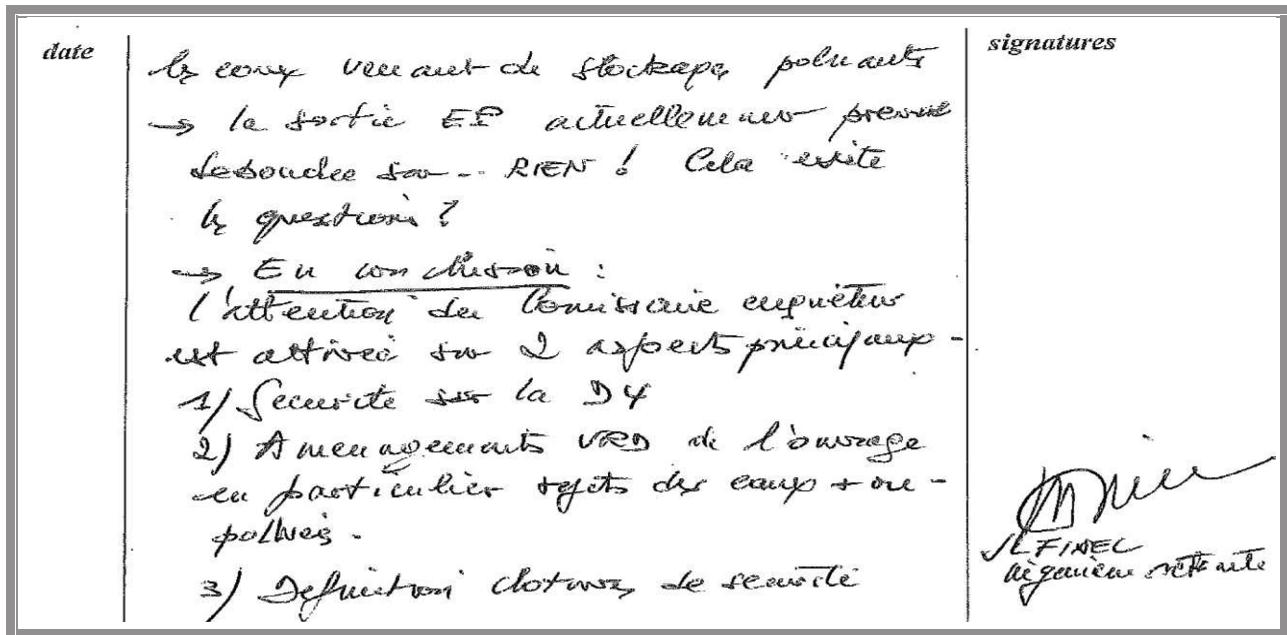 date
signatures
les eaux venant de stockages polluants
→ la sortie EP actuellement prevue
debouchee sur .. RIEN ! Cela evite
les questions ?
→ En conclusion :
l'attention du Comissaire enquêteur
est attirée sur 2 aspects principaux -
1/ Securite sur la D4
2) Amenagements VRD de l'ouvrage
en particulier rejets des eaux + ou -
polluées .
3/ Definition clotures de securité
JL FINEL
ingenieur retraite